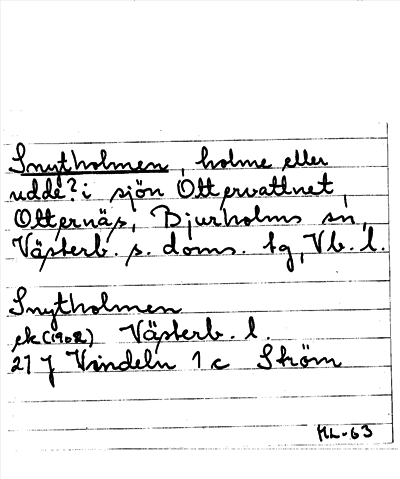 Snytholmen, holme eller
udde? i sjön Ottervattnet,
Otternäs, Bjurholms sn,
Västerb. s. doms. tg, Vb. l.
Snytholmen
ek (1902) Västerb. l.
21 J Vindeln 1 c Ström
HL-63